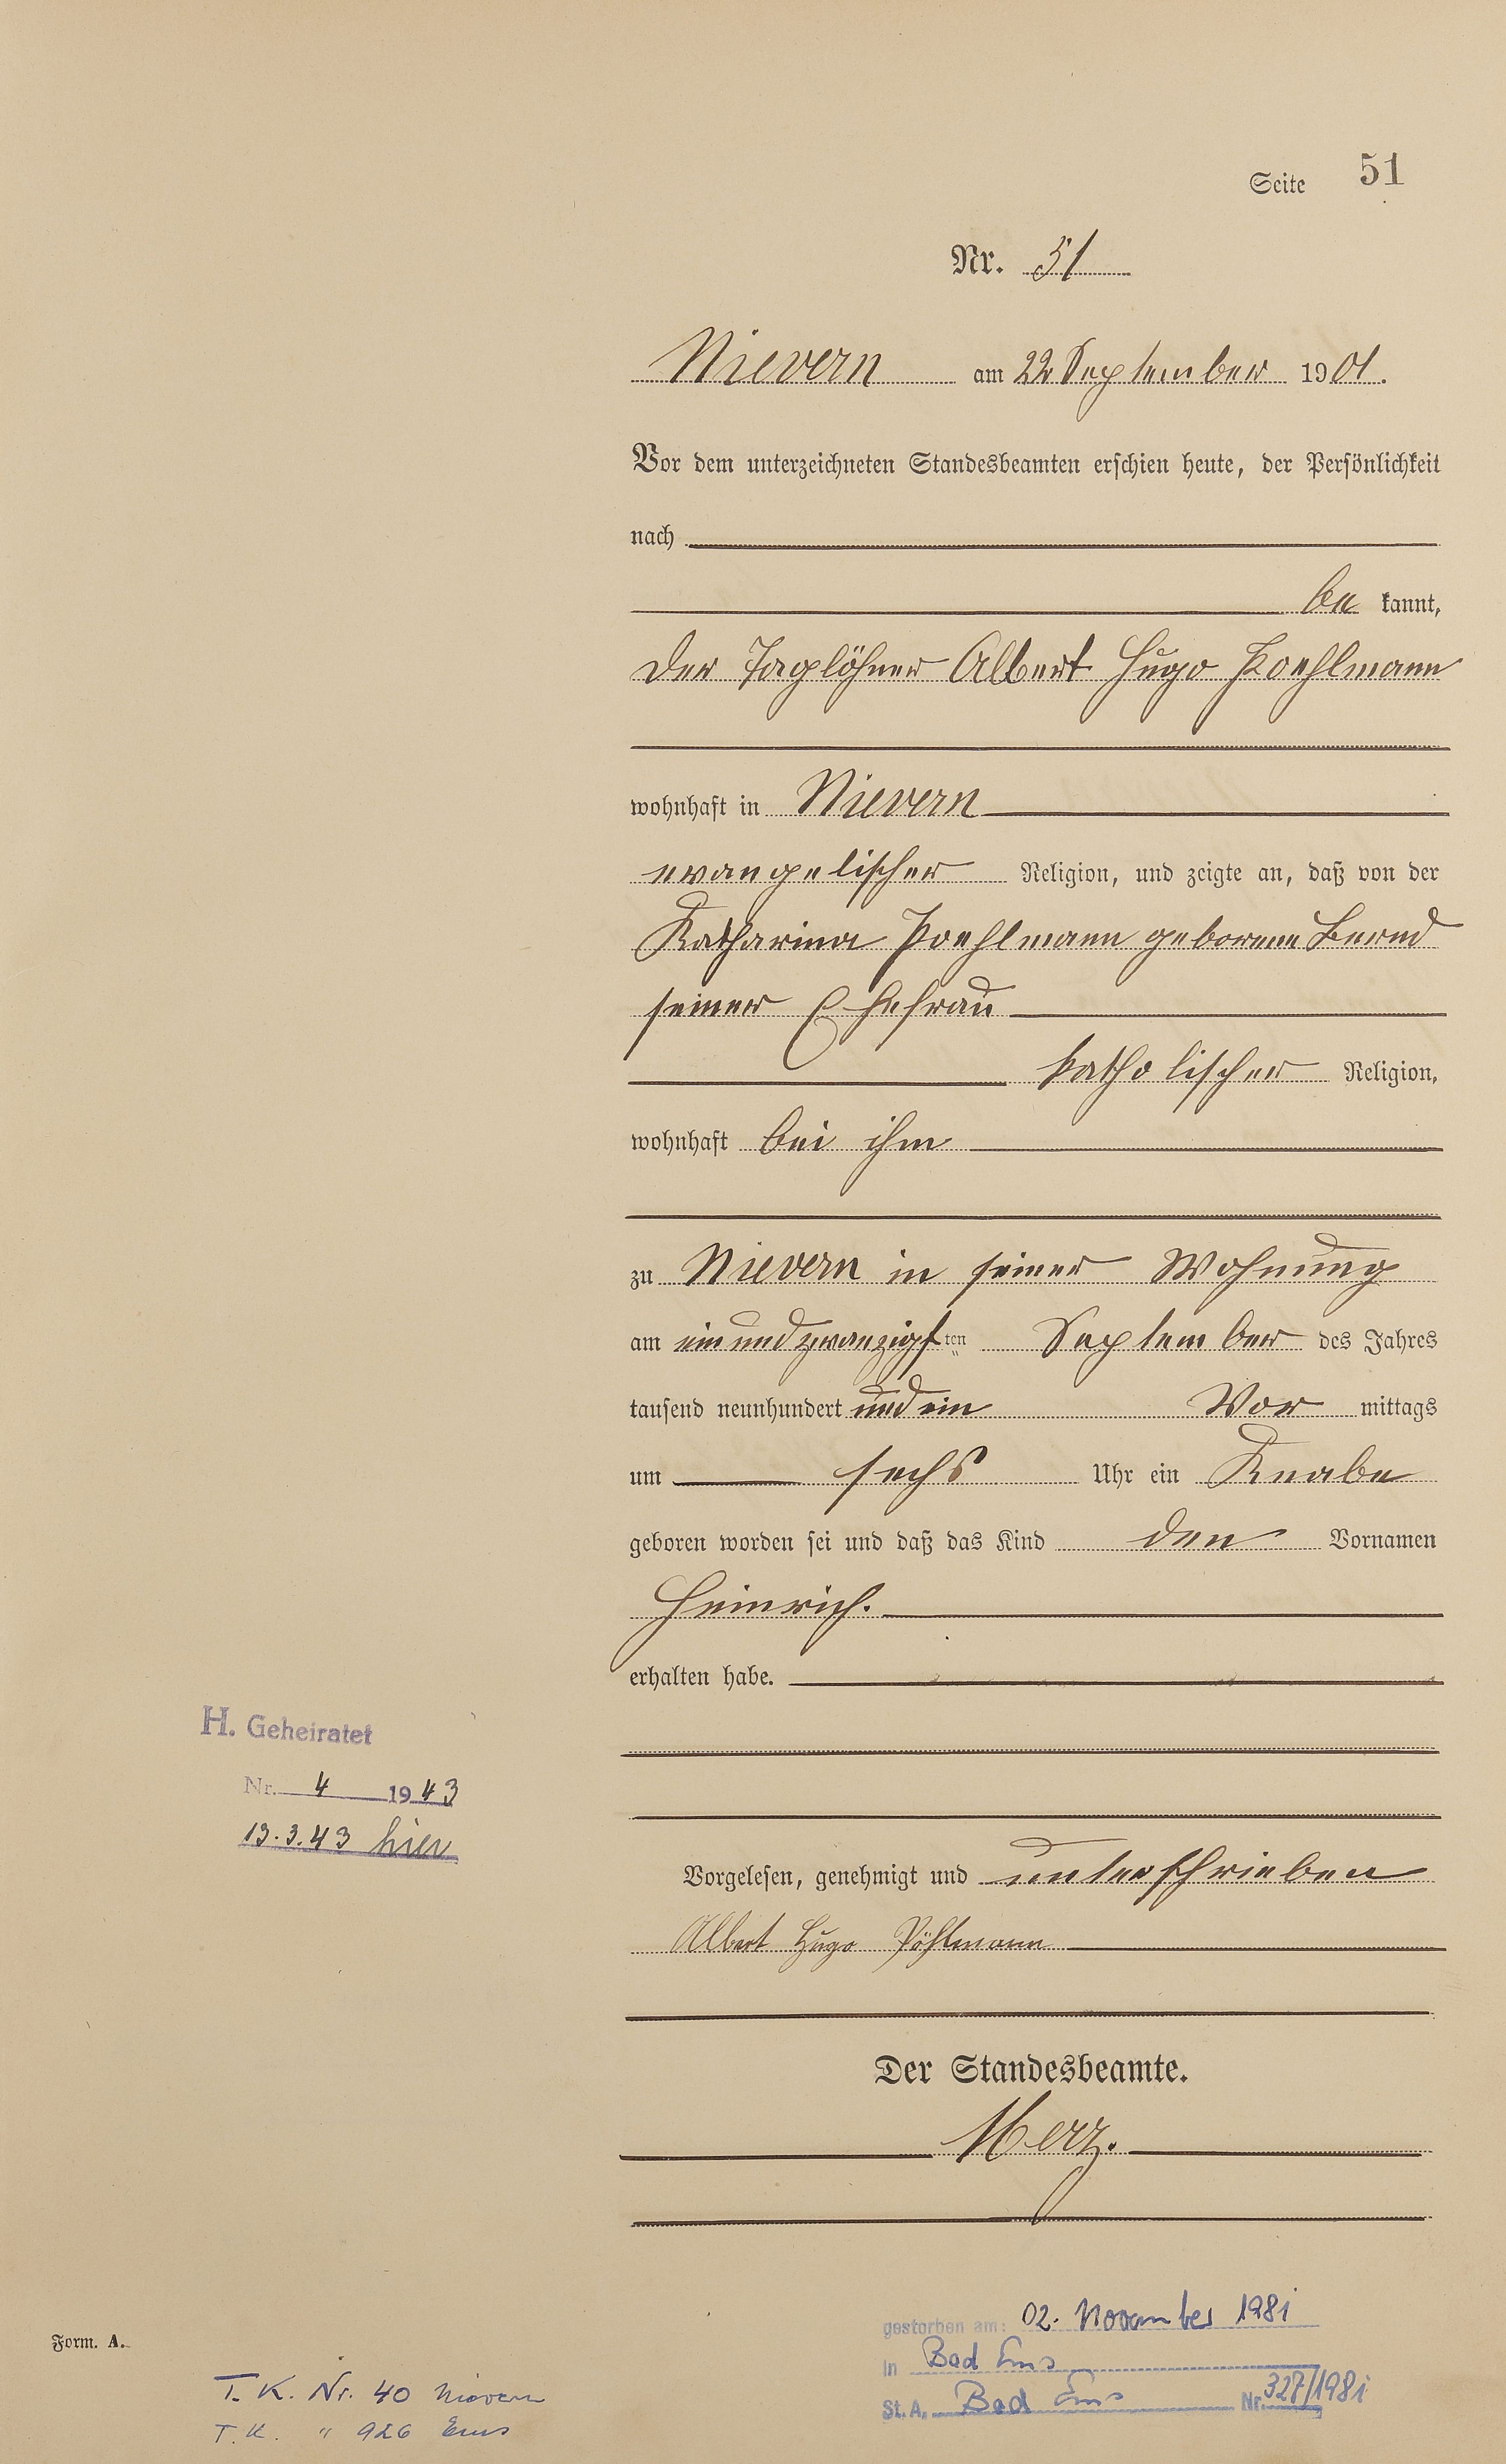 Seite 51
Nr. 51
Nievern am 22 September 1901.
Vor dem unterzeichneten Standesbeamten erschien heute, der Persönlichkeit
nach
be kannt,
der Taglöhner Albert Hugo Poehlmann
wohnhaft in Nievern
evangelischer Religion, und zeigte an, daß von der
Katharina Poehlmann geborene Bernd
seiner Ehefrau
katholischer Religion,
wohnhaft bei ihm
zu Nievern in seiner Wohnung
am ein und zwanzigsten September des Jahres
tausend neunhundert und ein Vor mittags
um sechs Uhr ein Knabe
geboren worden sei und daß das Kind den Vornamen
Heinrich.
erhalten habe.
H. Geheiratet
Nr. 4 1943
13.3.43 hier
Vorgelesen, genehmigt und unterschrieben
Albert Hugo Pöhlmann
Der Standesbeamte.
Merz.
gestorben am: 02. November 1981
in Bad Ems
St. A. Bad Ems Nr. 327/1981
Form. A.
T. K. Nr. 40 Nievern
T. K. " 926 Ems